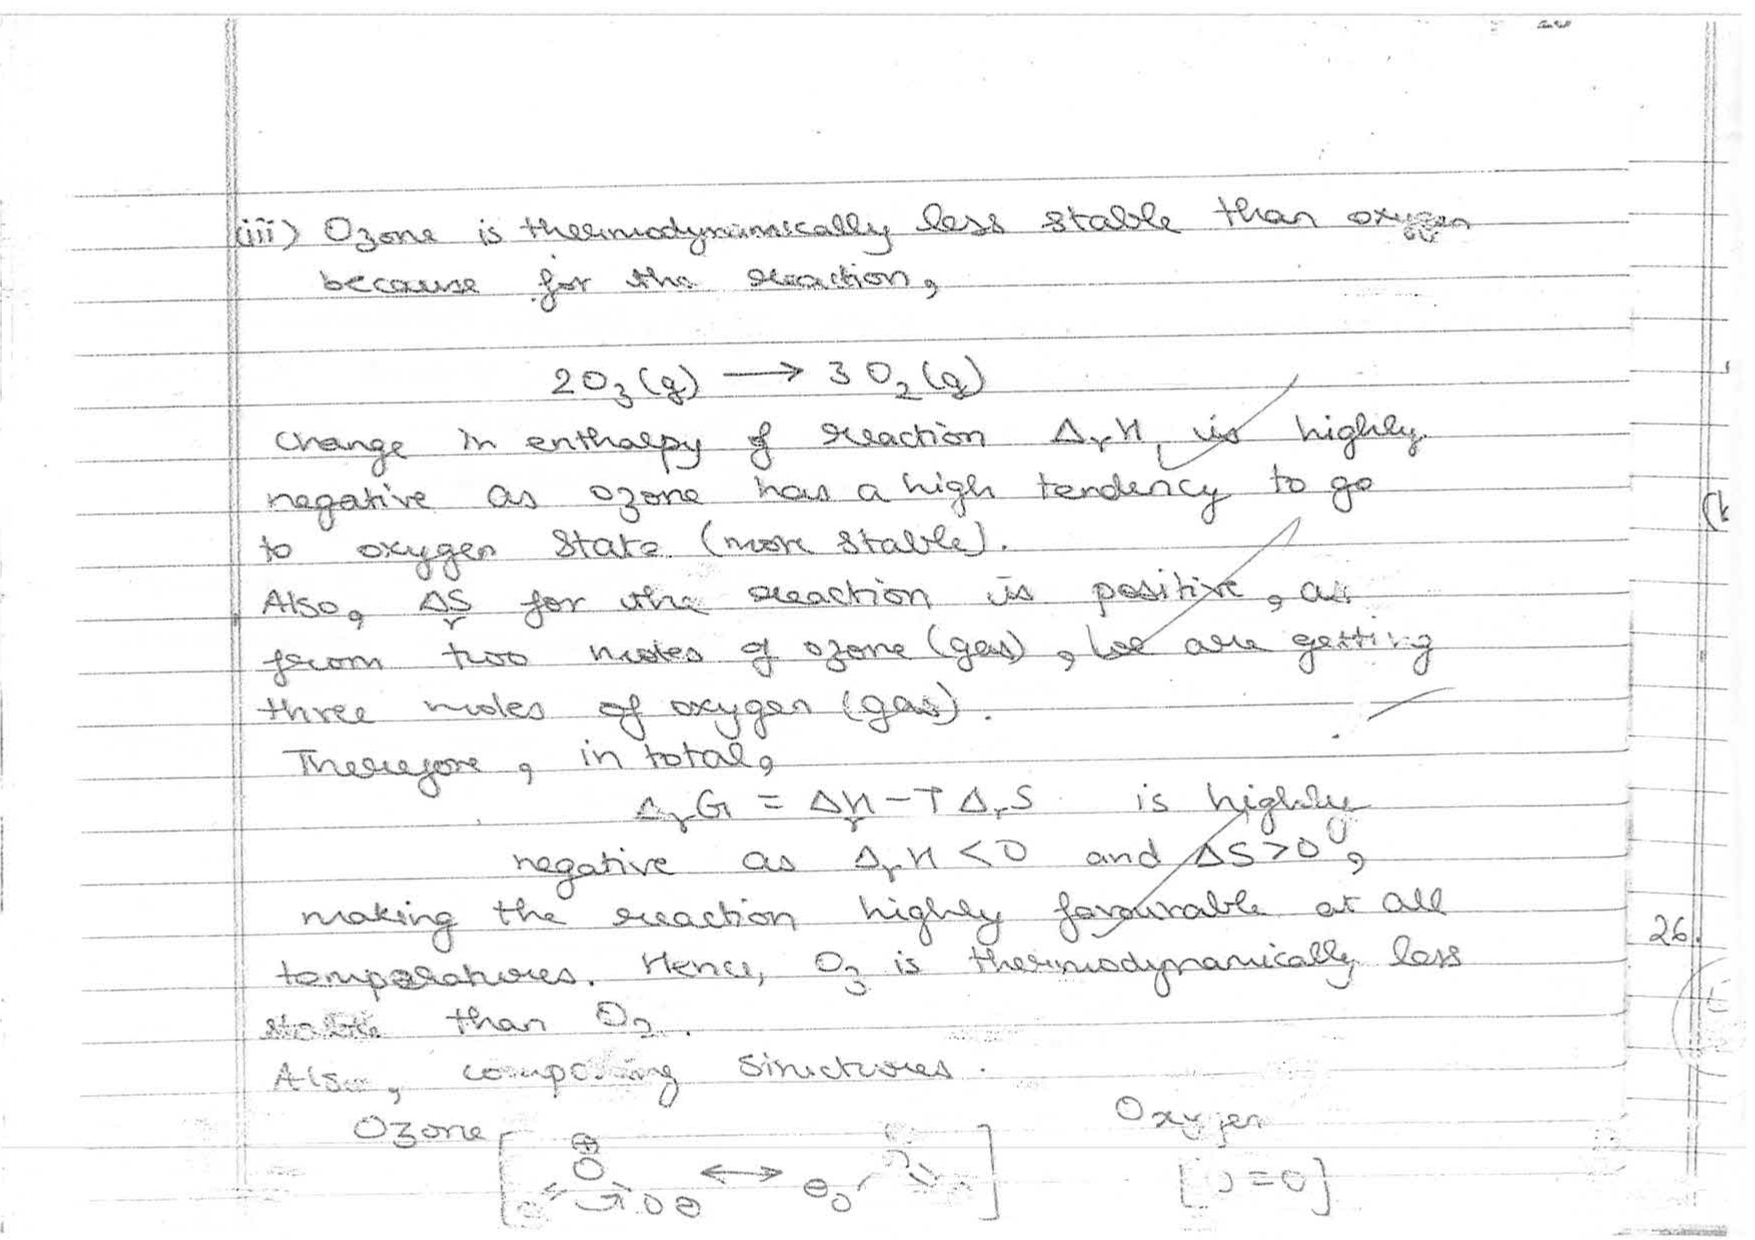 (iii) Ozone is thermodynamically less stable than oxygen
because for the reaction,
2O₃(g) → 3O₂(g)
Change in enthalpy of reaction ΔᵣH, is highly
negative as ozone has a high tendency to go
to oxygen state (more stable).
Also, ΔᵣS for the reaction is positive, as
from two moles of ozone (gas), we are getting
three moles of oxygen (gas).
Therefore, in total,
ΔᵣG = ΔᵣH - TΔᵣS is highly
negative as ΔᵣH < 0 and ΔS > 0,
making the reaction highly favourable at all
26.
temperatures. Hence, O₃ is thermodynamically less
stable than O₂.
Also, comparing structures.
Ozone Oxygen
⊕
O O⊖ ↔ ⊖O [O=O]